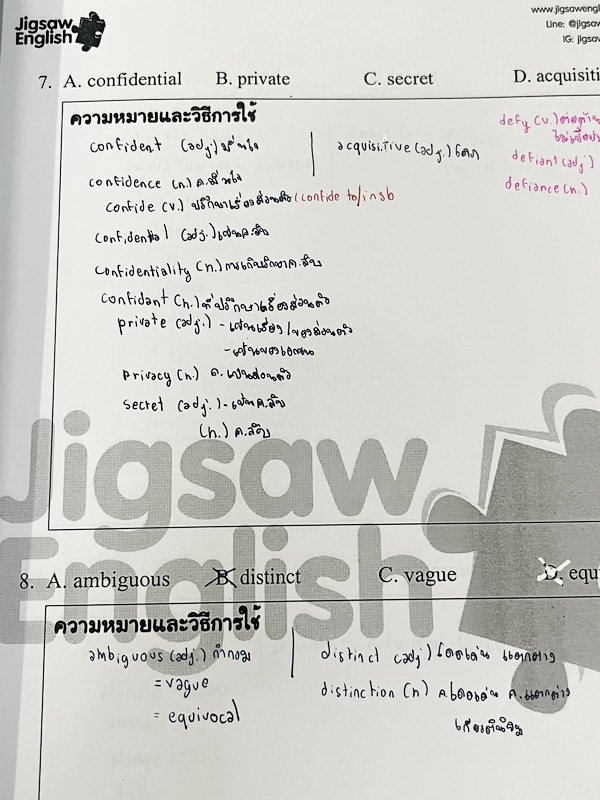 Jigsaw
English
www.jigsawengl
Line: @jigsaw
IG: jigsa
7. A. confidential B. private C. secret D. acquisiti
ความหมายและวิธีการใช้
confident (adj.) มั่นใจ
acquisitive (adj.) โลภ
defy (v.) ต่อต้าน
defiant (adj.)
defiance (n.)
confidence (n.) ค.มั่นใจ
confide (v.) ปรึกษาเรื่องส่วนตัว (confide to/in sb
confidential (adj.) เป็นค.ลับ
confidentiality (n.) การเก็บรักษาค.ลับ
confidant (n.) ที่ปรึกษาเรื่องส่วนตัว
private (adj.) - เป็นเรื่อง/ของส่วนตัว
- เป็นของเอกชน
privacy (n.) ค.เป็นส่วนตัว
secret (adj.) - เป็นค.ลับ
(n.) ค.ลับ
Jigsaw
English
8. A. ambiguous B. distinct C. vague D. equi
ความหมายและวิธีการใช้
ambiguous (adj.) กำกวม
= vague
= equivocal
distinct (adj.) โดดเด่น แตกต่าง
distinction (n) ค.โดดเด่น ค.แตกต่าง
เกียรตินิยม